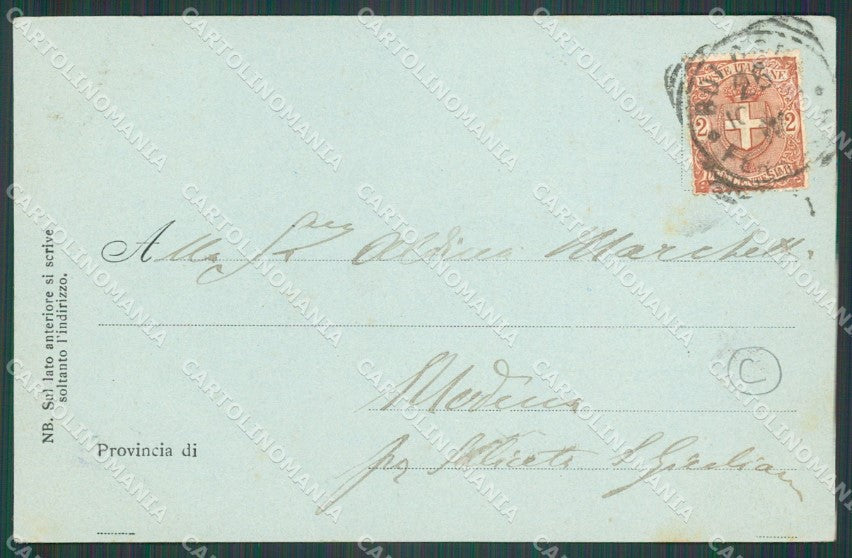 POSTE ITALIANE
2 2
BOLOGNA
NB. Sul lato anteriore si scrive
soltanto l'indirizzo.
Alla Sig Aldina Marchetti
Modena
Provincia di
per S. Giuliano
C
CARTOLINOMANIA